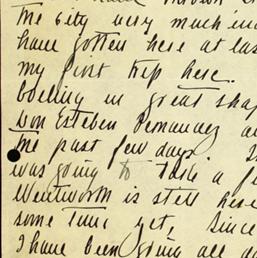 the city very much in
have gotten here at las
my first trip here.
in great shap
Don Esteban Fernandez a
the past few days. I
was going to take a f
Wentworth is still here
some time yet, since
I have been going all da